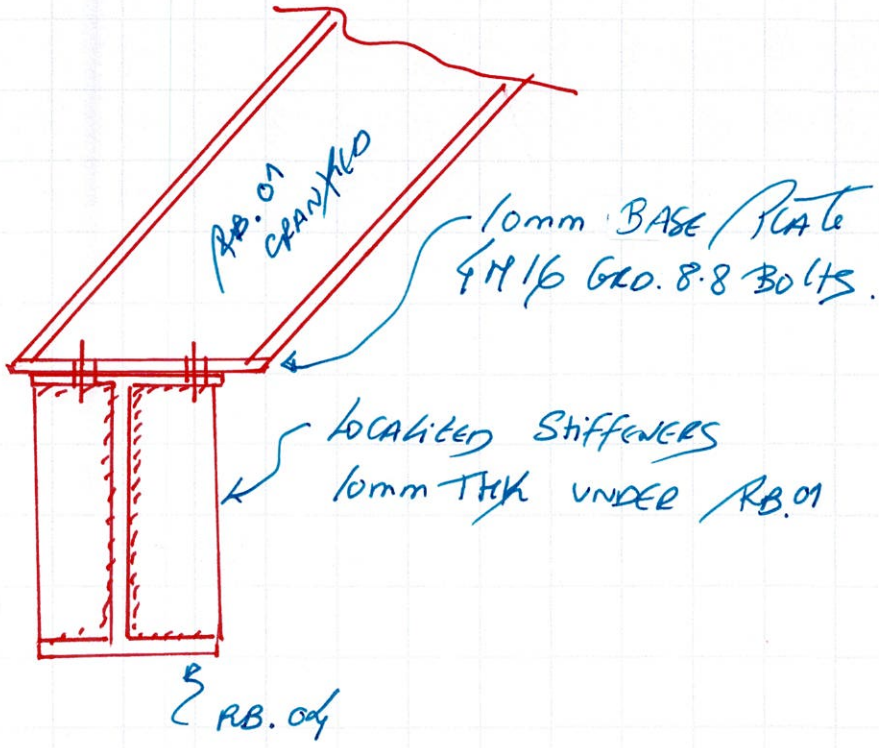 RB.01
CRANKED
10mm BASE PLATE
4M16 GRD. 8.8 BOltS.
LOCALIZED StiFFENERS
10mm THK UNDER RB.01
RB.04